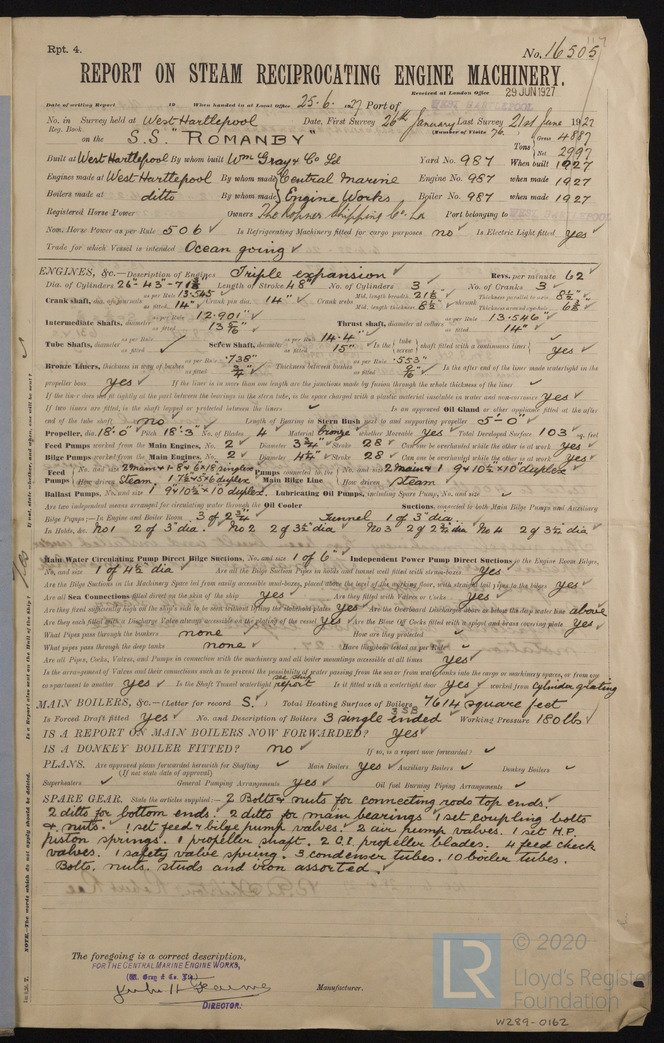 Rpt. 4.
No. 16505
REPORT ON STEAM RECIPROCATING ENGINE MACHINERY.
Received at London Office 29 JUN 1927
Date of writing Report 19 When handed in at Local Office 25.6.1927 Port of WEST HARTLEPOOL
No. in Survey held at West Hartlepool Date, First Survey 26th January Last Survey 21st June 1927
Reg. Book. (Number of Visits 76.)
on the S.S. "ROMANBY" Tons Gross 4887 Net 2997
Built at West Hartlepool By whom built Wm Gray & Co Ld Yard No. 987 When built 1927
Engines made at West Hartlepool By whom made Central Marine Engine No. 987 when made 1927
Boilers made at ditto By whom made Engine Works Boiler No. 987 when made 1927
Registered Horse Power Owners The Ropner Shipping Co. Ld Port belonging to
Nom. Horse Power as per Rule 506 Is Refrigerating Machinery fitted for cargo purposes no Is Electric Light fitted yes
Trade for which Vessel is intended Ocean going
ENGINES, &c.—Description of Engines Triple expansion Revs. per minute 62
Dia. of Cylinders 26"-43"-71½" Length of Stroke 48" No. of Cylinders 3 No. of Cranks 3
Crank shaft, dia. of journals as per Rule 13.545 as fitted 14" Crank pin dia. 14" Crank webs Mid. length breadth 21⅞" Mid. length thickness 8½" shrunk Thickness parallel to axis 8½" Thickness around eye-hole 6⅝"
Intermediate Shafts, diameter as per Rule 12.901" as fitted 13 5/16" Thrust shaft, diameter at collars as per Rule 13.546" as fitted 14"
Tube Shafts, diameter as per Rule as fitted Screw Shaft, diameter as per Rule 14.4" as fitted 15" Is the tube screw shaft fitted with a continuous liner yes
Bronze Liners, thickness in way of bushes as per Rule .738" as fitted ¾" Thickness between bushes as per Rule .553" as fitted 9/16" Is the after end of the liner made watertight in the
propeller boss yes If the liner is in more than one length are the junctions made by fusion through the whole thickness of the liner
If the liner does not fit tightly at the part between the bearings in the stern tube, is the space charged with a plastic material insoluble in water and non-corrosive yes
If two liners are fitted, is the shaft lapped or protected between the liners Is an approved Oil Gland or other appliance fitted at the after
end of the tube shaft no Length of Bearing in Stern Bush next to and supporting propeller 5'-0"
Propeller, dia. 18'-0" Pitch 18'-3" No. of Blades 4 Material bronze whether Moveable yes Total Developed Surface 103 sq. feet
Feed Pumps worked from the Main Engines, No. 2 Diameter 3¾" Stroke 28 Can one be overhauled while the other is at work yes
Bilge Pumps worked from the Main Engines, No. 2 Diameter 4½" Stroke 28 Can one be overhauled while the other is at work yes
Feed Pumps No. and size 2 Main & 1-8 & 6 x 18 simplex 1 7½ x 5 x 6 duplex How driven Steam Pumps connected to the Main Bilge Line No. and size 2 Main & 1 9 x 10½ x 10 duplex How driven Steam
Ballast Pumps, No. and size 1 9" x 10½" x 10 duplex. Lubricating Oil Pumps, including Spare Pump, No. and size
Are two independent means arranged for circulating water through the Oil Cooler Suctions, connected to both Main Bilge Pumps and Auxiliary
Bilge Pumps;—In Engine and Boiler Room 3 of 2¾" Tunnel 1 of 3" dia.
In Holds, &c. No 1 2 of 3" dia. No 2 2 of 3½ dia No 3 2 of 2½ dia No 4 2 of 3½ dia
Main Water Circulating Pump Direct Bilge Suctions, No. and size 1 of 6" Independent Power Pump Direct Suctions to the Engine Room Bilges,
No. and size 1 of 4½" dia Are all the Bilge Suction Pipes in holds and tunnel well fitted with strum-boxes yes
Are the Bilge Suctions in the Machinery Space led from easily accessible mud-boxes, placed above the level of the working floor, with straight tail pipes to the bilges yes
Are all Sea Connections fitted direct on the skin of the ship yes Are they fitted with Valves or Cocks yes
Are they fixed sufficiently high on the ship's side to be seen without lifting the stokehold plates yes Are the Overboard Discharges above or below the deep water line above
Are they each fitted with a Discharge Valve always accessible on the plating of the vessel yes Are the Blow Off Cocks fitted with a spigot and brass covering plate yes
What Pipes pass through the bunkers none How are they protected
What pipes pass through the deep tanks none Have they been tested as per Rule
Are all Pipes, Cocks, Valves, and Pumps in connection with the machinery and all boiler mountings accessible at all times yes
Is the arrangement of Valves and their connections such as to prevent the possibility of water passing from the sea or from water tanks into the cargo or machinery spaces, or from one
compartment to another yes Is the Shaft Tunnel watertight see ship report Is it fitted with a watertight door yes worked from cylinder grating
MAIN BOILERS, &c.—(Letter for record S.) Total Heating Surface of Boilers 7614 square feet
Is Forced Draft fitted yes No. and Description of Boilers 3 single ended 3SB Working Pressure 180 lbs
IS A REPORT ON MAIN BOILERS NOW FORWARDED? yes
IS A DONKEY BOILER FITTED? no If so, is a report now forwarded?
PLANS. Are approved plans forwarded herewith for Shafting Main Boilers yes Auxiliary Boilers Donkey Boilers
(If not state date of approval)
Superheaters General Pumping Arrangements yes Oil fuel Burning Piping Arrangements
SPARE GEAR. State the articles supplied:— 2 Bolts & nuts for connecting rods top ends.
2 ditto for bottom ends. 2 ditto for main bearings 1 set coupling bolts
& nuts. 1 set feed & bilge pump valves. 2 air pump valves. 1 set H.P.
piston springs. 1 propeller shaft. 2 C.I. propeller blades. 4 feed check
valves. 1 safety valve spring. 3 condenser tubes. 10 boiler tubes.
Bolts, nuts, studs and iron assorted.
The foregoing is a correct description,
FOR THE CENTRAL MARINE ENGINE WORKS,
(W. Gray & Co. Ld.)
Manufacturer.
DIRECTOR.
NOTE.—The words which do not apply should be deleted.
LR © 2020
Lloyd's Register
Foundation
W289-0162